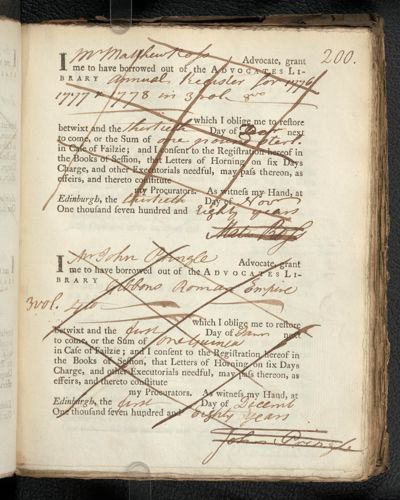 200.
I Mr Matthew Ross Advocate, grant
me to have borrowed out of the ADVOCATES LI-
BRARY Annual Register for 1776
1777 & 1778 in 3 vols 8vo
which I oblige me to restore
betwixt and the thirtieth Day of next
to come, or the Sum of one pound Ster.
in Case of Failzie; and I consent to the Registration hereof in
the Books of Session, that Letters of Horning on six Days
Charge, and other Executorials needful, may pass thereon, as
effeirs, and thereto constitute
my Procurators. As witness my Hand, at
Edinburgh, the thirtieth Day of Nov
One thousand seven hundred and Eighty years
Matw Ross
I Mr John Pringle Advocate, grant
me to have borrowed out of the ADVOCATES LI-
BRARY Gibbons Roman Empire
3 vol. 4to
which I oblige me to restore
betwixt and the first Day of Janr next
to come, or the Sum of one Guinea
in Case of Failzie; and I consent to the Registration hereof in
the Books of Session, that Letters of Horning on six Days
Charge, and other Executorials needful, may pass thereon, as
effeirs, and thereto constitute
my Procurators. As witness my Hand, at
Edinburgh, the first Day of Decemb
One thousand seven hundred and eighty years
John Pringle